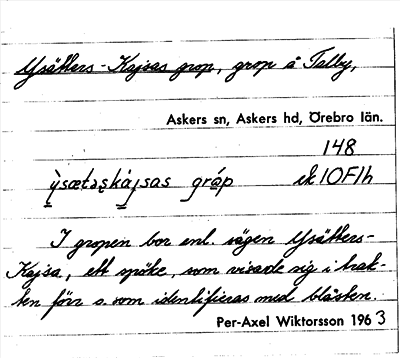 Ysätters-Kajsas grop, grop å Talby,
Askers sn, Askers hd, Örebro län.
148
ek 10F1h
I gropen bor enl. sägen Ysätters-
Kajsa, ett spöke, som visade sig i trak-
ten förr o. som identifieras med blåsten.
Per-Axel Wiktorsson 1963